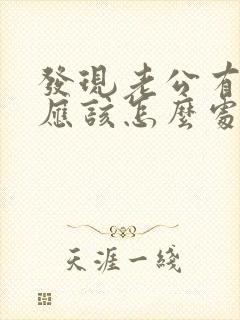 發現老公有
應該怎麼處
天涯一綫